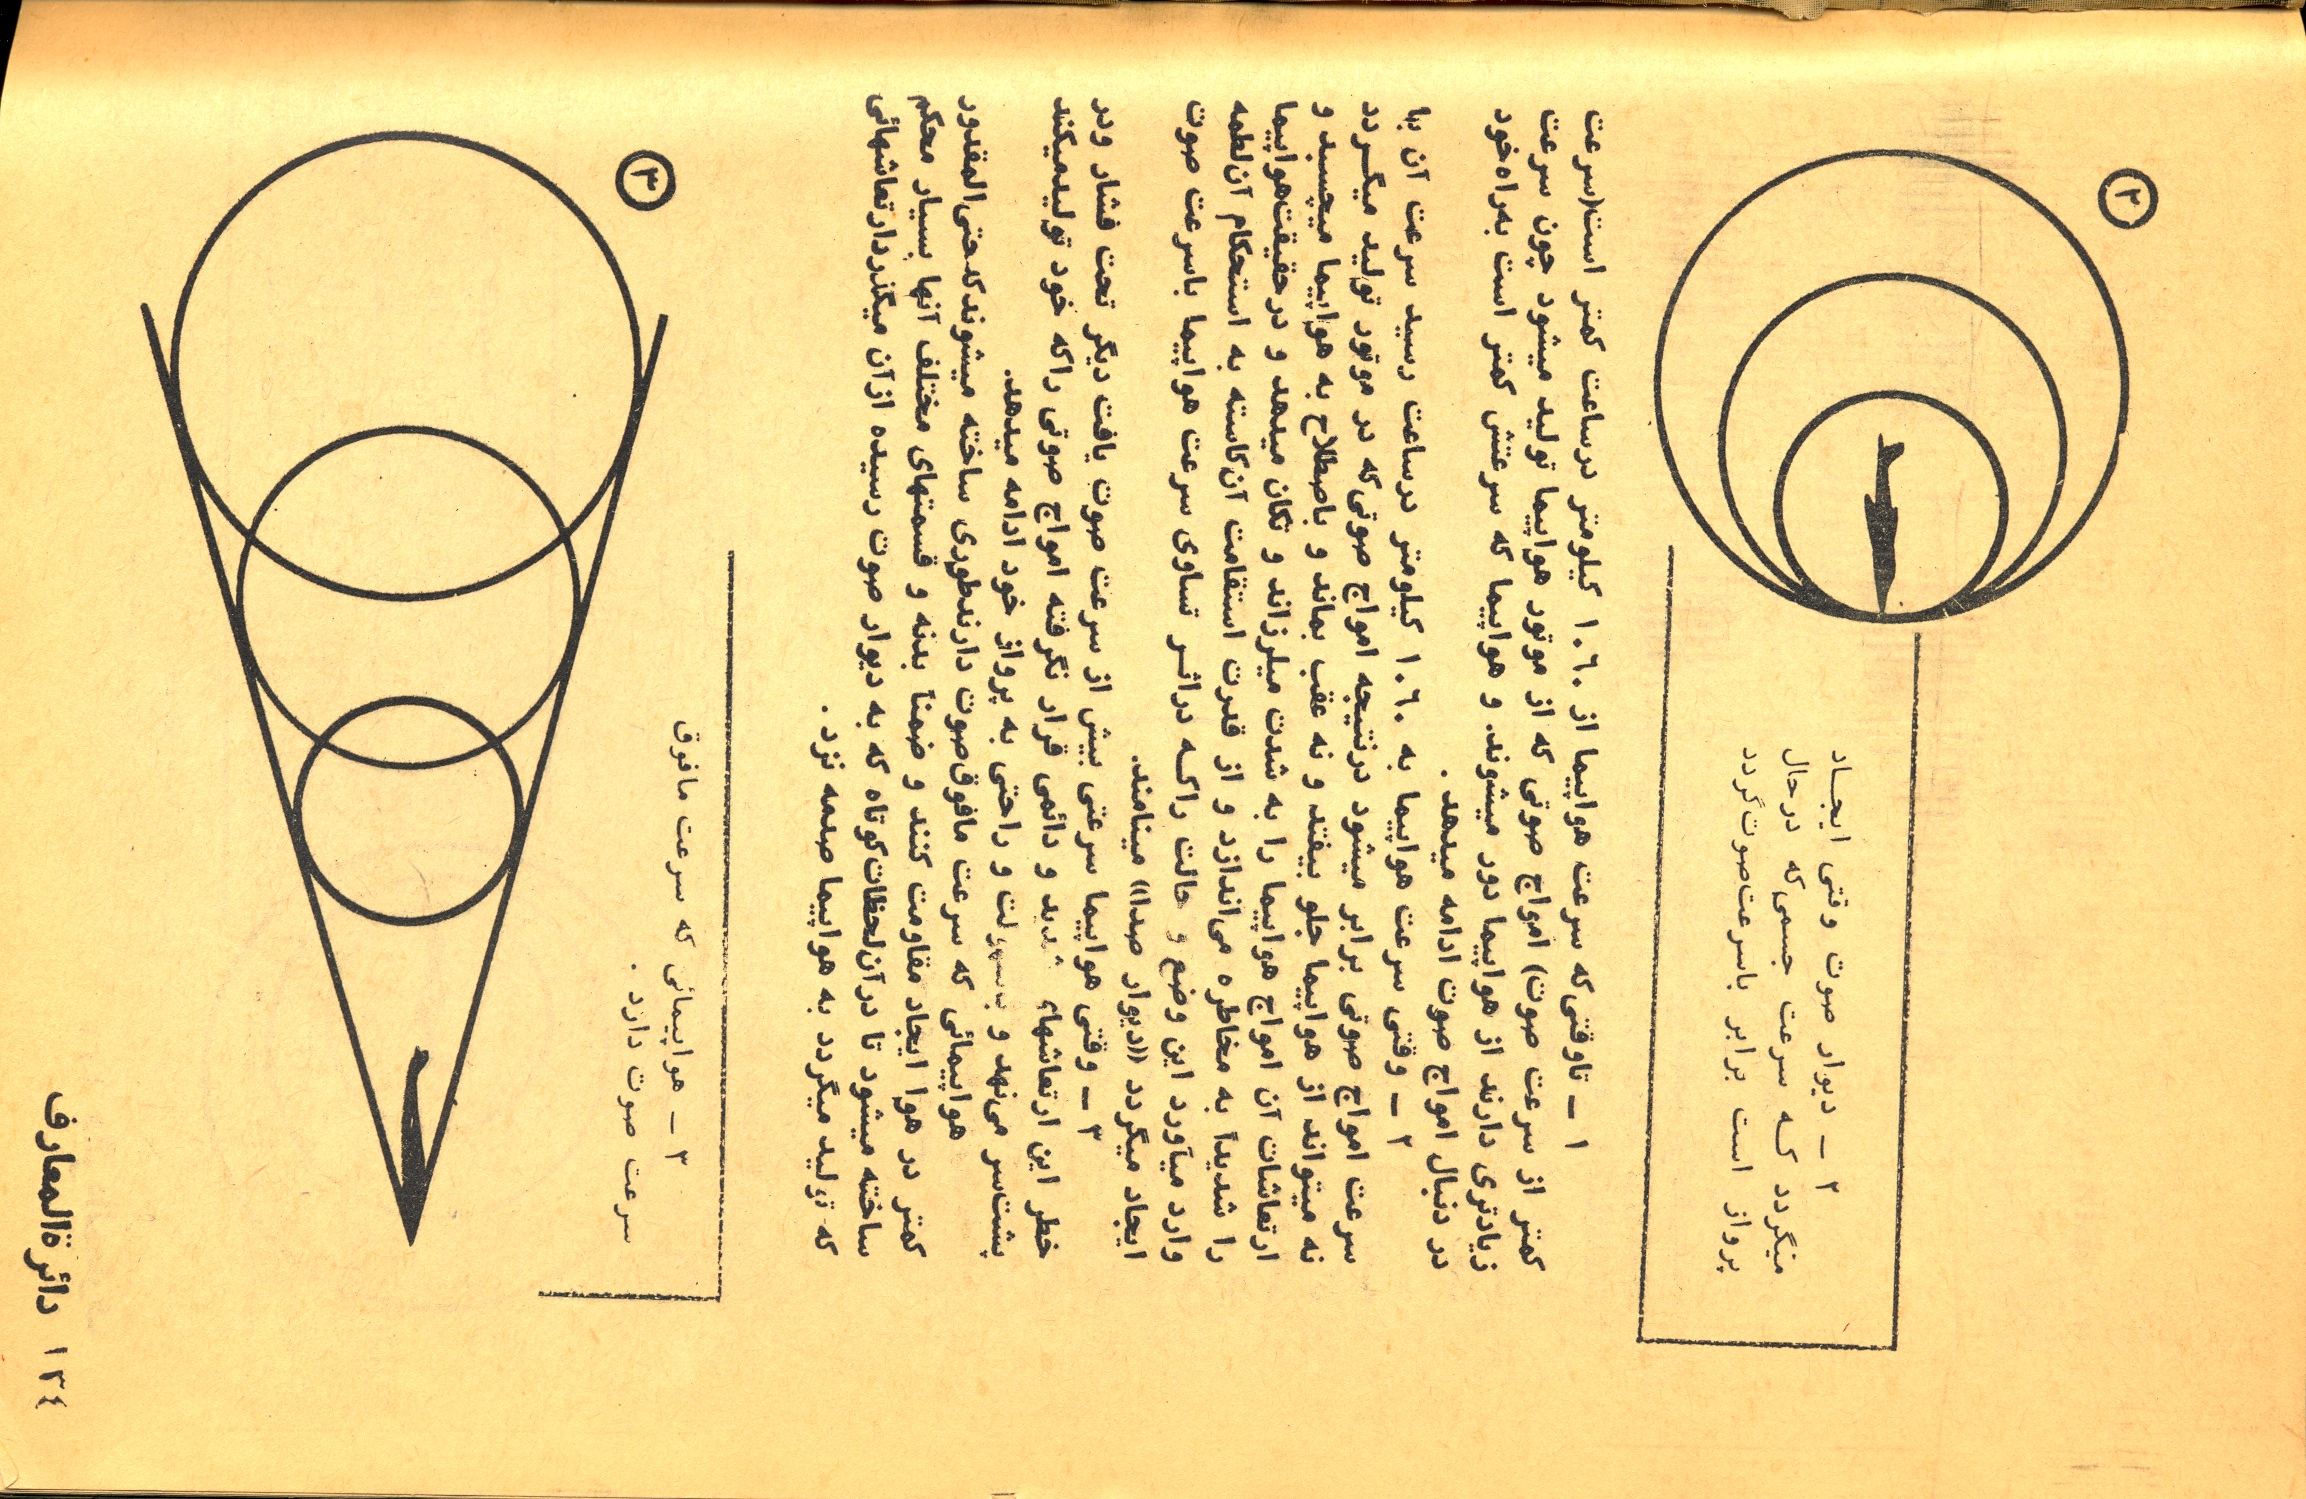 ۲
۲ ــ دیوار صوت وقتی ایجـاد
میگردد کـه سرعت جسمی‌که درحال
پرواز است برابر باسرعت‌صوت‌گردد
۱ ــ تاوقتی‌که سرعت هواپیما از ۱۰۶۰ کیلومتر درساعت کمتر است(سرعت
کمتر از سرعت صوت) امواج صوتی که از موتور هواپیما تولید میشود چون سرعت
زیادتری دارند از هواپیما دور میشوند. و هواپیما که سرعتش کمتر است به‌راه‌خود
در دنبال امواج صوت ادامه میدهد .
۲ ــ وقتی سرعت هواپیما به ۱۰۶۰ کیلومتر درساعت رسید سرعت آن با
سرعت امواج صوتی برابر میشود درنتیجه امواج صوتی‌که در موتور تولید میگـردد
نه میتواند از هواپیما جلو بیفتد و نه عقب بماند و باصطلاح به هواپیما میچسبد و
ارتعاشات آن امواج هواپیما را به شدت میلرزاند و تکان میدهد و درحقیقت‌هواپیما
را شدیداً به مخاطره می‌اندازد و از قدرت استقامت آن‌کاسته به استحکام آن‌لطمه
وارد میآورد این وضع و حالت راکـه دراثـر تساوی سرعت هواپیما باسرعت صوت
ایجاد میگردد «دیوار صدا» مینامند.
۳ ــ وقتی هواپیما سرعتی بیش از سرعت صوت یافت دیگر تحت فشار ودر
خطر این ارتعاشهای شدید و دائمی قرار نگرفته امواج صوتی راکه خود تولیدمیکند
پشت‌سر می‌نهد و بسهولت و راحتی به پرواز خود ادامه میدهد.
هواپیمائی که سرعت مافوق‌صوت دارندطوری ساخته میشوندکه‌حتی‌المقدور
کمتر در هوا ایجاد مقاومت کنند و ضمناً بدنه و قسمتهای مختلف آنها بسیار محکم
ساخته میشود تا در آن‌لحظات‌کوتاه که به دیوار صوت رسیده ازآن میگذردارتعاشهائی
که تولید میگردد به هواپیما صدمه نزد .
۳
۳ ــ هواپیمائی که سرعت مافوق
سرعت صوت دارد .
۱۳۴ دائرةالمعارف